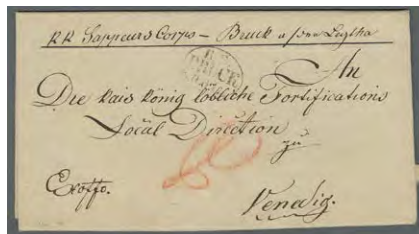 K K Sappeurs Corps – Bruck a/der Leytha
BRUCK
An
Die kais könig löbliche Fortifications
Local Direction
zu
Exoffo.
Venedig.